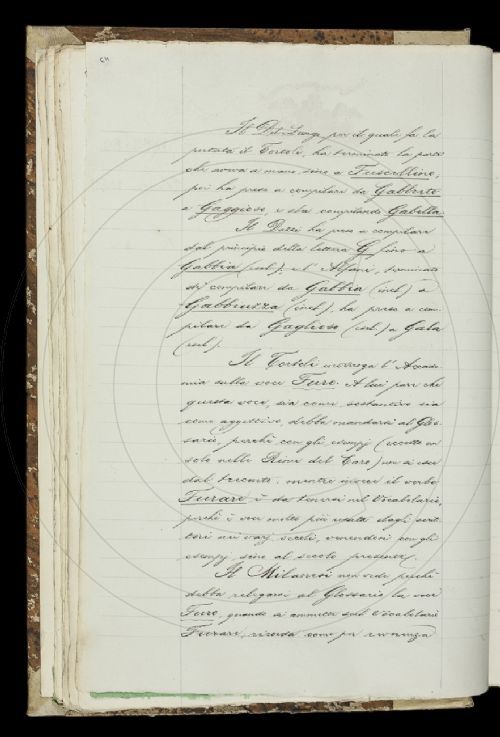 Il Del Lungo, per il quale fa la
puntata il Tortoli, ha terminato la parte
che aveva a mano, sino a Fuscellino,
poi ha preso a compilare da Gabbrite
a Gaggioso, e sta compilando Gabella
Il Dazzi ha preso a compilare
dal principio della lettera G fino a
Gabbia (incl.), e l' Alfani, terminato
di compilare da Gabbia (incl.) a
Gabbiuzza (incl.), ha preso a com-
pilare da Gaglioso (incl.) a Gala
(incl.).
Il Tortoli interroga l' Accade-
mia sulla voce Furo. A lui pare che
questa voce, sia come sostantivo sia
come aggettivo, debba mandarsi al Glos-
sario, perchè con gli esempj (eccetto un
solo nelle Rime del Caro) non si esce
dal trecento: mentre invece il verbo
Furare è da tenersi nel Vocabolario,
perchè è voce molto più usata dagli scrit-
tori nei varj secoli, venendosi con gli
esempj sino al secolo presente.
Il Milanesi non vede perchè
debba relegarsi al Glossario la voce
Furo, quando si ammette nel Vocabolario
Furare,